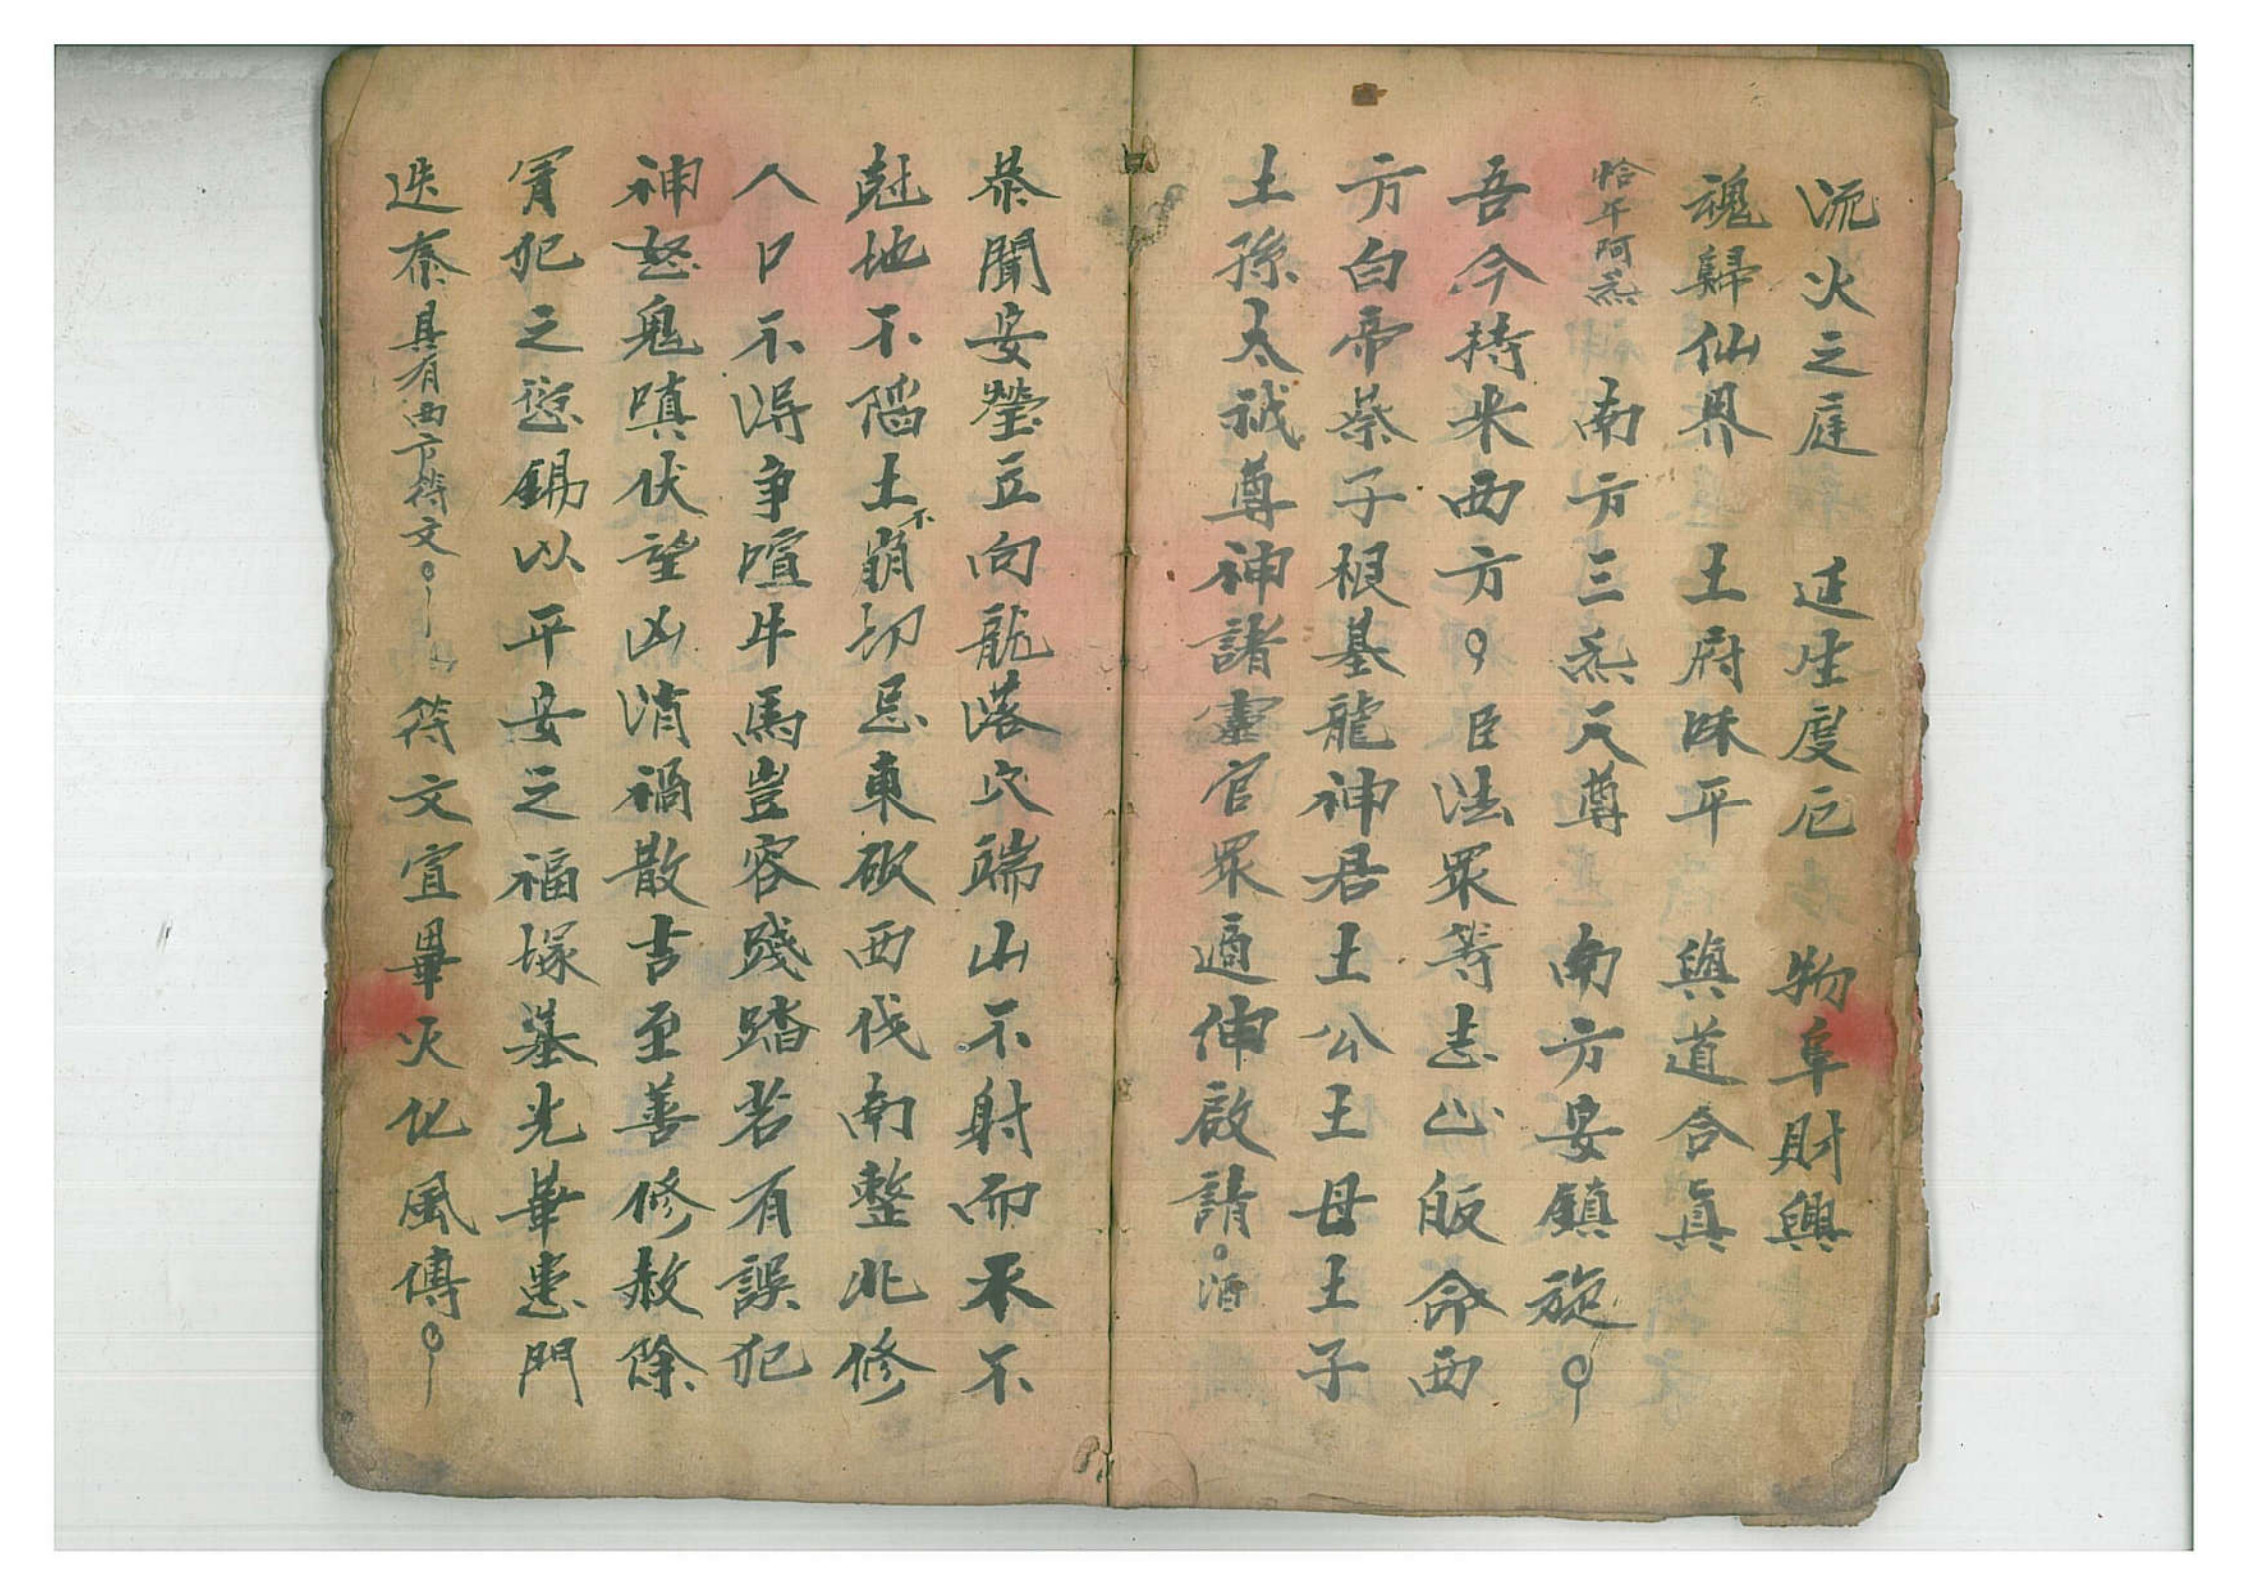 流火之庭　延生度厄　物阜財興
魂歸仙界　土府咪平　與道合真
恰平阿炁　南方三炁天尊　南方安鎮旋
吾今持來西方臣法眾等志心皈命西
方白帝蔡子根基龍神君土公王母土子
土孫太誠尊神諸靈官眾適伸啟請酒
恭聞安瑩立向龍落穴端山不射而不
尅地不陷土不崩切忌東砍西伐南整北修
人口不得爭喧牛馬豈容踐踏若有誤犯
神怒鬼嗔伏望凶消禍散吉至善修赦除
冐犯之愆錫以平安之福塚墓光華惠門
迭泰具有西方苻文　苻文宣畢火化風傳